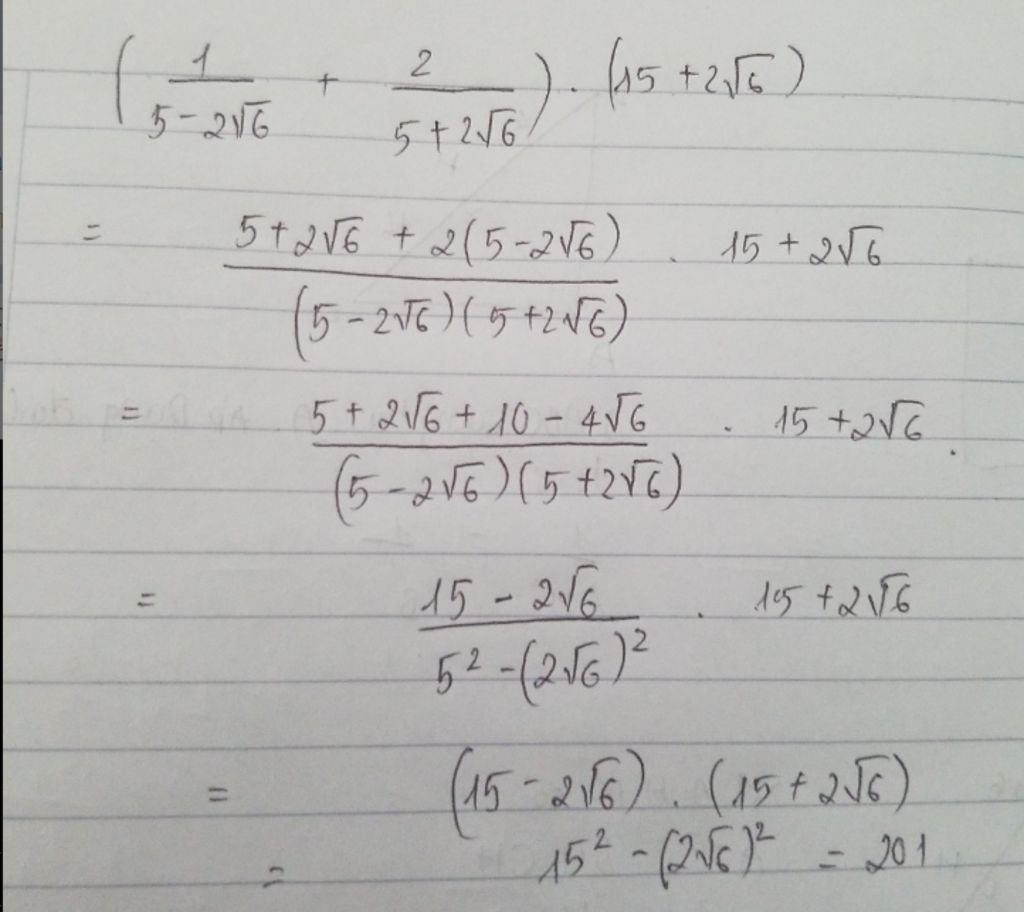 (1/(5-2√6) + 2/(5+2√6)) . (15+2√6)
= (5+2√6 + 2(5-2√6))/((5-2√6)(5+2√6)) . 15+2√6
= (5+2√6+10-4√6)/((5-2√6)(5+2√6)) . 15+2√6.
= (15-2√6)/(5²-(2√6)²) . 15+2√6
= (15-2√6) . (15+2√6)
= 15² - (2√6)² = 201